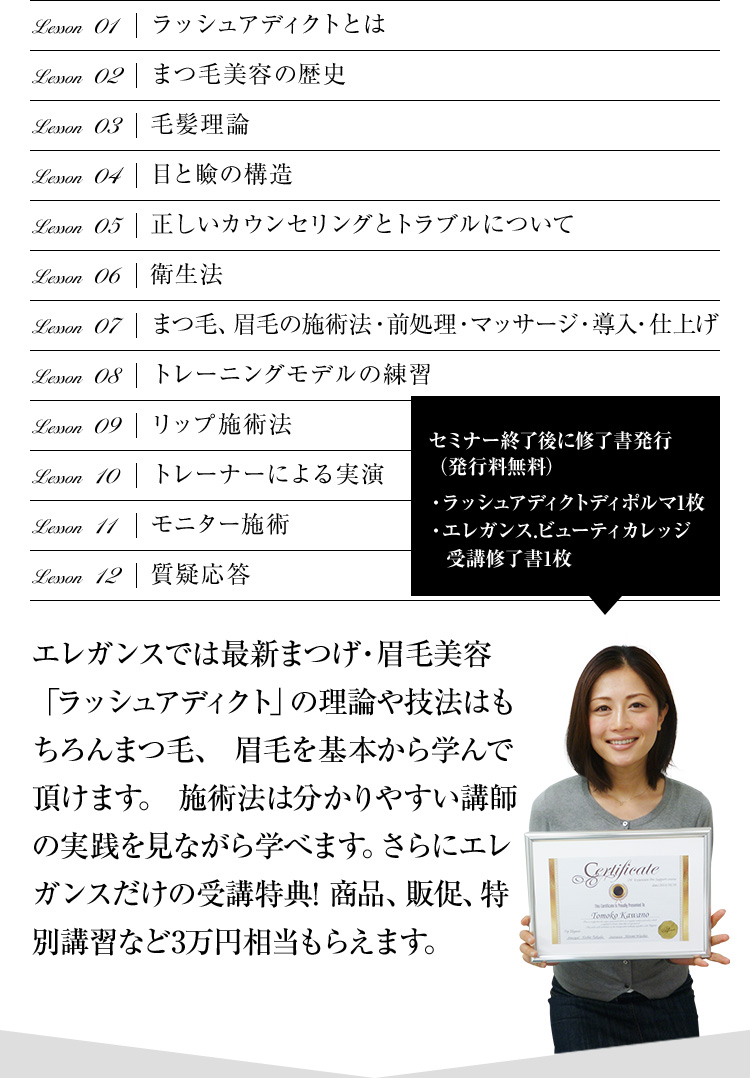 Lesson 01 | ラッシュアディクトとは
Lesson 02 | まつ毛美容の歴史
Lesson 03 | 毛髪理論
Lesson 04 | 目と瞼の構造
Lesson 05 | 正しいカウンセリングとトラブルについて
Lesson 06 | 衛生法
Lesson 07 | まつ毛、眉毛の施術法・前処理・マッサージ・導入・仕上げ
Lesson 08 | トレーニングモデルの練習
Lesson 09 | リップ施術法
Lesson 10 | トレーナーによる実演
Lesson 11 | モニター施術
Lesson 12 | 質疑応答
セミナー終了後に修了書発行
（発行料無料）
・ラッシュアディクトディポルマ1枚
・エレガンス.ビューティカレッジ
受講修了書1枚
エレガンスでは最新まつげ・眉毛美容
「ラッシュアディクト」の理論や技法はも
ちろんまつ毛、 眉毛を基本から学んで
頂けます。 施術法は分かりやすい講師
の実践を見ながら学べます。さらにエレ
ガンスだけの受講特典! 商品、販促、特
別講習など3万円相当もらえます。
Certificate
Tomoko Kawano